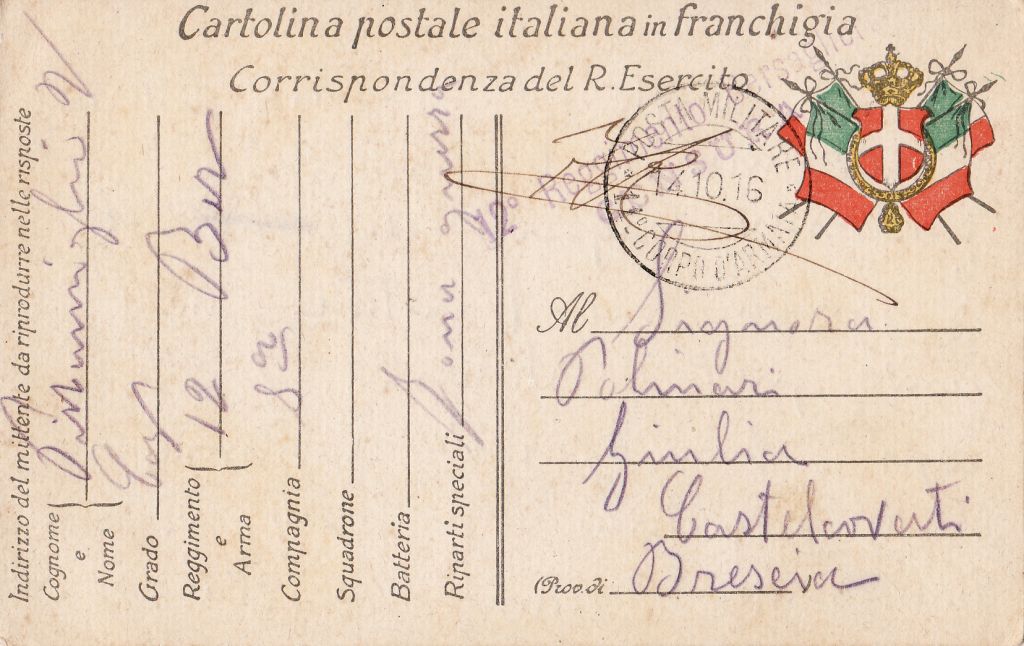 Cartolina postale italiana in franchigia
Corrispondenza del R. Esercito
12° Reggimento Bersaglieri
POSTA MILITARE
17.10.16
CORPO D'ARMATA
Al Signora
Palmari
Giulia
Castelcovati
(Prov. di Brescia
Indirizzo del mittente da riprodurre nelle risposte
Cognome
e
Nome
Grado
Reggimento 12 Ber
e
Arma
Compagnia 8a
Squadrone
Batteria
Riparti speciali Zona guerra